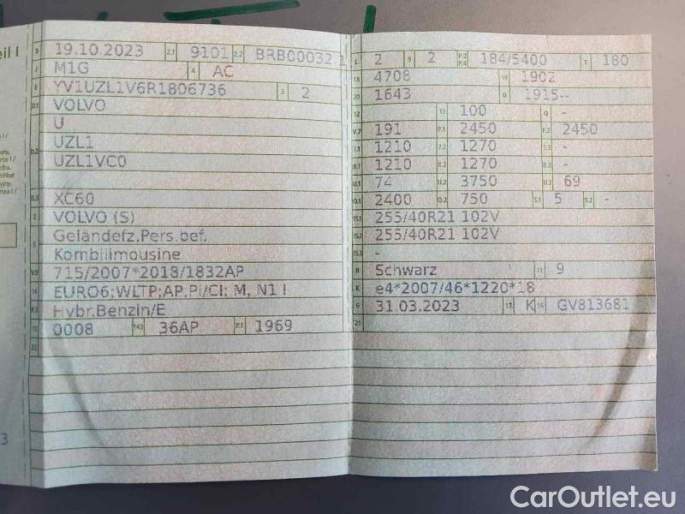 eil I
19.10.2023 2.1 9101 2.2 BRB00032 1
J M1G 4 AC
E YV1UZL1V6R1806736 3 2
D.1 VOLVO
U
D.2 UZL1
UZL1VC0
D.3 XC60
2 VOLVO (S)
5 Geländefz.Pers.bef.
Kombilimousine
V.9 715/2007*2018/1832AP
14 EURO6;WLTP;AP,PI/CI; M, N1 I
P.3 Hybr.Benzin/E
10 0008 14.1 36AP P.1 1969
22
L 2 9 2 P.2 P.4 184/5400 T 180
18 4708 19 1902
20 1643 G 1915--
12 - 13 100 Q -
V.7 191 F.1 2450 F.2 2450
7.1 1210 7.2 1270 7.3 -
8.1 1210 8.2 1270 8.3 -
U.1 74 U.2 3750 U.3 69
O.1 2400 O.2 750 S.1 5 S.2 -
15.1 255/40R21 102V
15.2 255/40R21 102V
15.3 -
R Schwarz 11 9
K e4*2007/46*1220*18
6 31.03.2023 17 K 16 GV813681
21
3
CarOutlet.eu